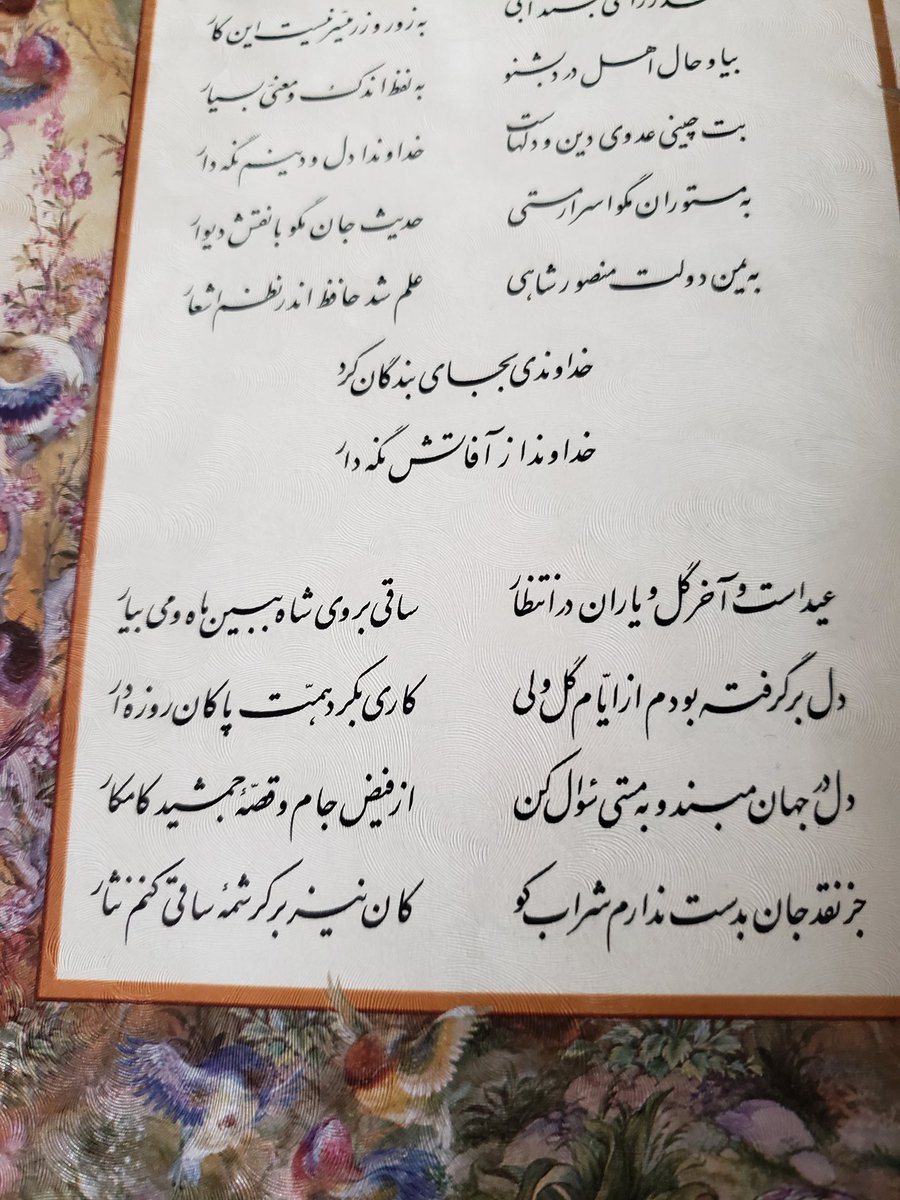 به زور و زر میسّر نیست این کا
بیا و حال اهل درد بشنو به لفظ اندک و معنی بسیار
بت چینی عدوی دین و دلهاست خداوندا دل و دینم نگه دار
به مستوران مگو اسرار مستی حدیث جان مگو با نقش دیوار
به یمن دولت منصور شاهی علم شد حافظ اندر نظم اشعار
خداوندی بجای بندگان کرد
خداوندا ز آفاتش نگه دار
عید است و آخر گل و یاران در انتظار ساقی بروی شاه ببین ماه و می بیار
دل برگرفته بودم از ایّام گل ولی کاری بکرد همّت پاکان روزه دار
دل در جهان مبند و به مستی سئوال کن از فیض جام و قصّهٔ جمشید کامکار
جز نقد جان بدست ندارم شراب کو کان نیز بر کرشمهٔ ساقی کنم نثار